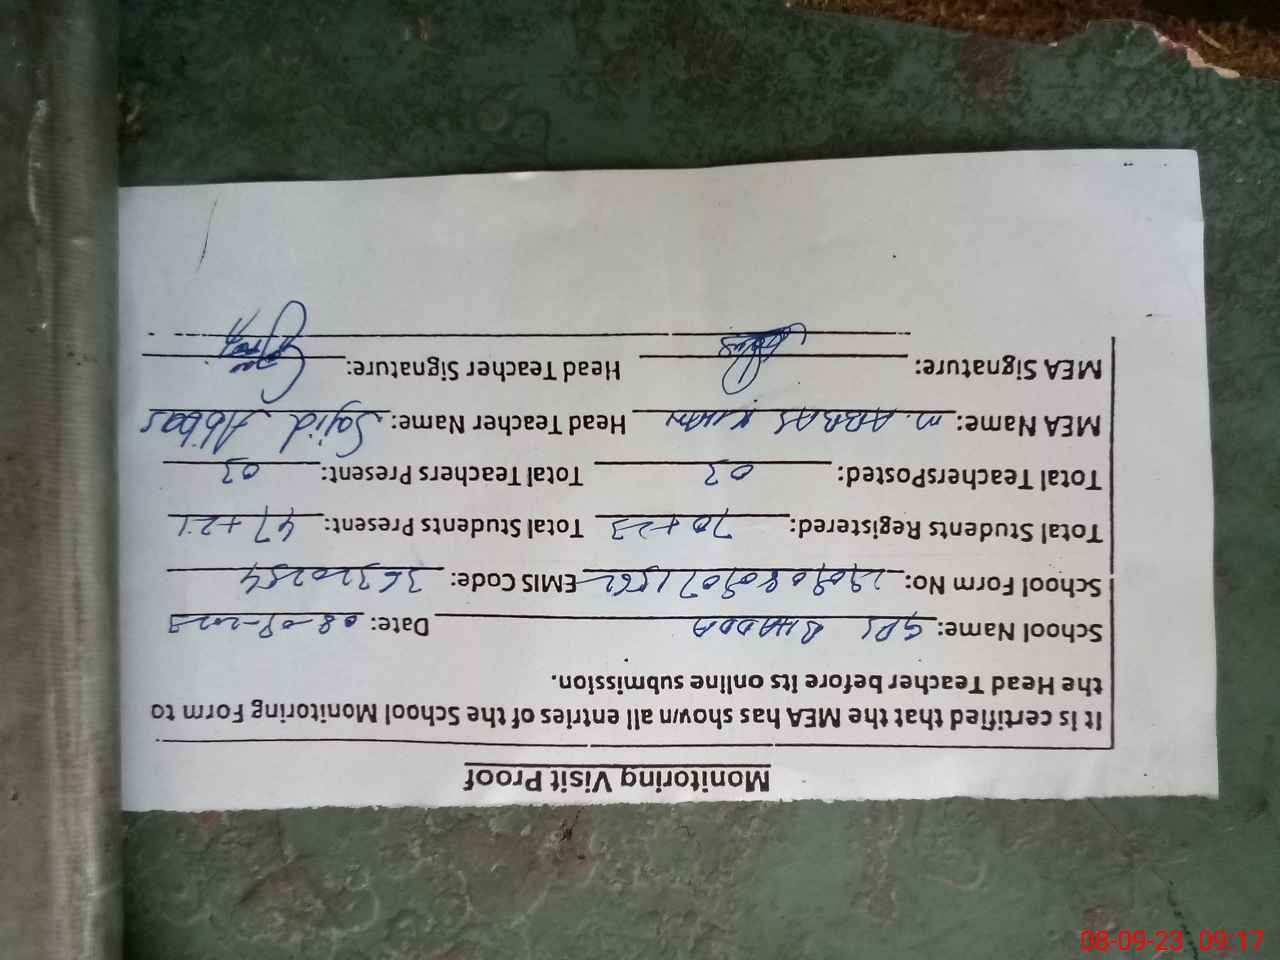 Monitoring Visit Proof
It is certified that the MEA has shown all entries of the School Monitoring Form to
the Head Teacher before its online submission.
School Name: GPS BHADDA Date: 08-09-2023
School Form No: EMIS Code: 36320254
Total Students Registered: 70+23 Total Students Present: 47+21
Total TeachersPosted: 03 Total Teachers Present: 03
MEA Name: M. ABBAS KHAN Head Teacher Name: Sajid Abbas
MEA Signature: Head Teacher Signature:
08-09-23 09:17